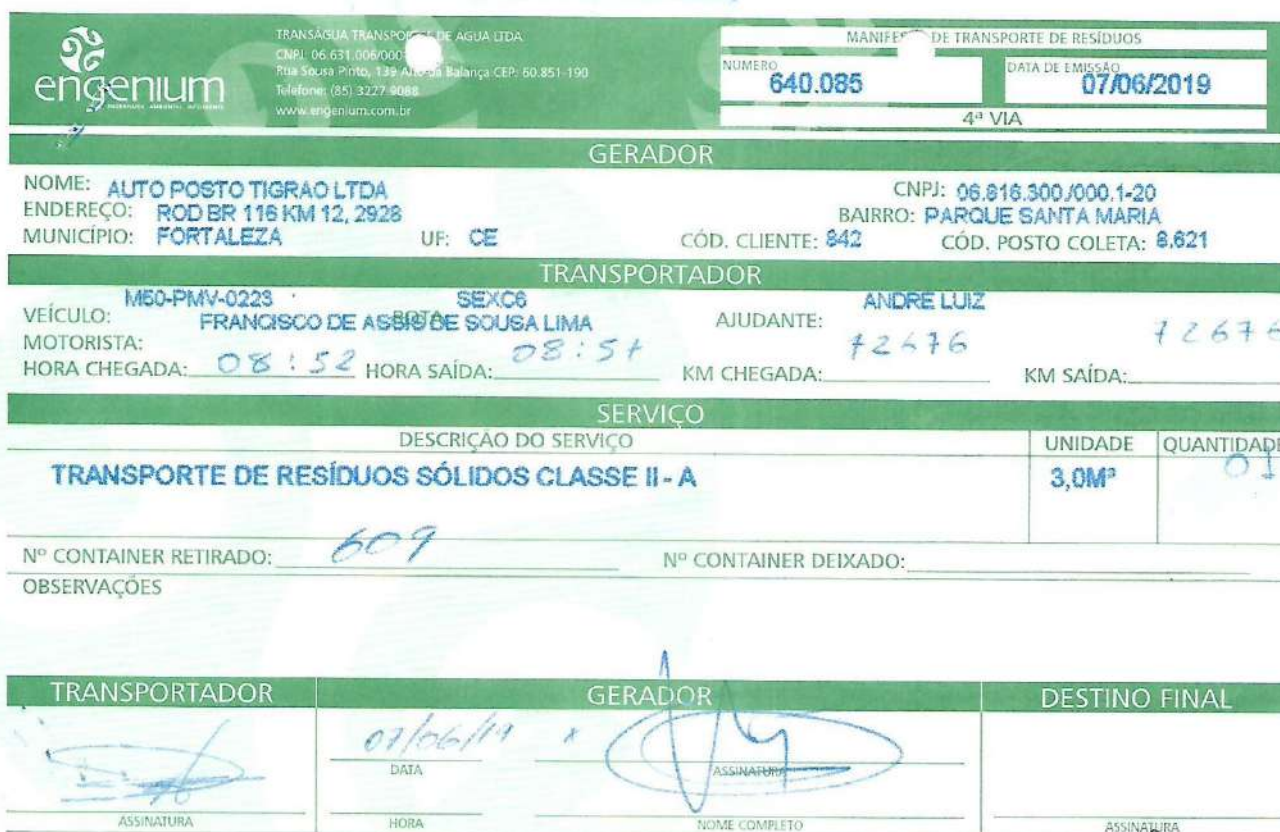 engenium
TRANSÁGUA TRANSPORTE DE AGUA LTDA
CNPJ: 06.631.006/000
Rua Sousa Pinto, 139 Alto da Balança CEP: 60.851-190
Telefone: (85) 3227 9088
www.engenium.com.br
MANIFES DE TRANSPORTE DE RESÍDUOS
NUMERO 640.085
DATA DE EMISSÃO 07/06/2019
4ª VIA
GERADOR
NOME: AUTO POSTO TIGRAO LTDA CNPJ: 06.816.300/000.1-20
ENDEREÇO: ROD BR 116 KM 12, 2928 BAIRRO: PARQUE SANTA MARIA
MUNICÍPIO: FORTALEZA UF: CE CÓD. CLIENTE: 842 CÓD. POSTO COLETA: 8.621
TRANSPORTADOR
VEÍCULO: M50-PMV-0223 ROTA: SEXC6 AJUDANTE: ANDRE LUIZ
MOTORISTA: FRANCISCO DE ASSIS DE SOUSA LIMA
HORA CHEGADA: 08:52 HORA SAÍDA: 08:57 KM CHEGADA: 72676 KM SAÍDA: 72676
SERVIÇO
DESCRIÇÃO DO SERVIÇO UNIDADE QUANTIDADE
TRANSPORTE DE RESÍDUOS SÓLIDOS CLASSE II - A 3,0M³ 01
Nº CONTAINER RETIRADO: 609 Nº CONTAINER DEIXADO:
OBSERVAÇÕES
TRANSPORTADOR GERADOR DESTINO FINAL
07/06/19 x
DATA ASSINATURA
ASSINATURA HORA NOME COMPLETO ASSINATURA